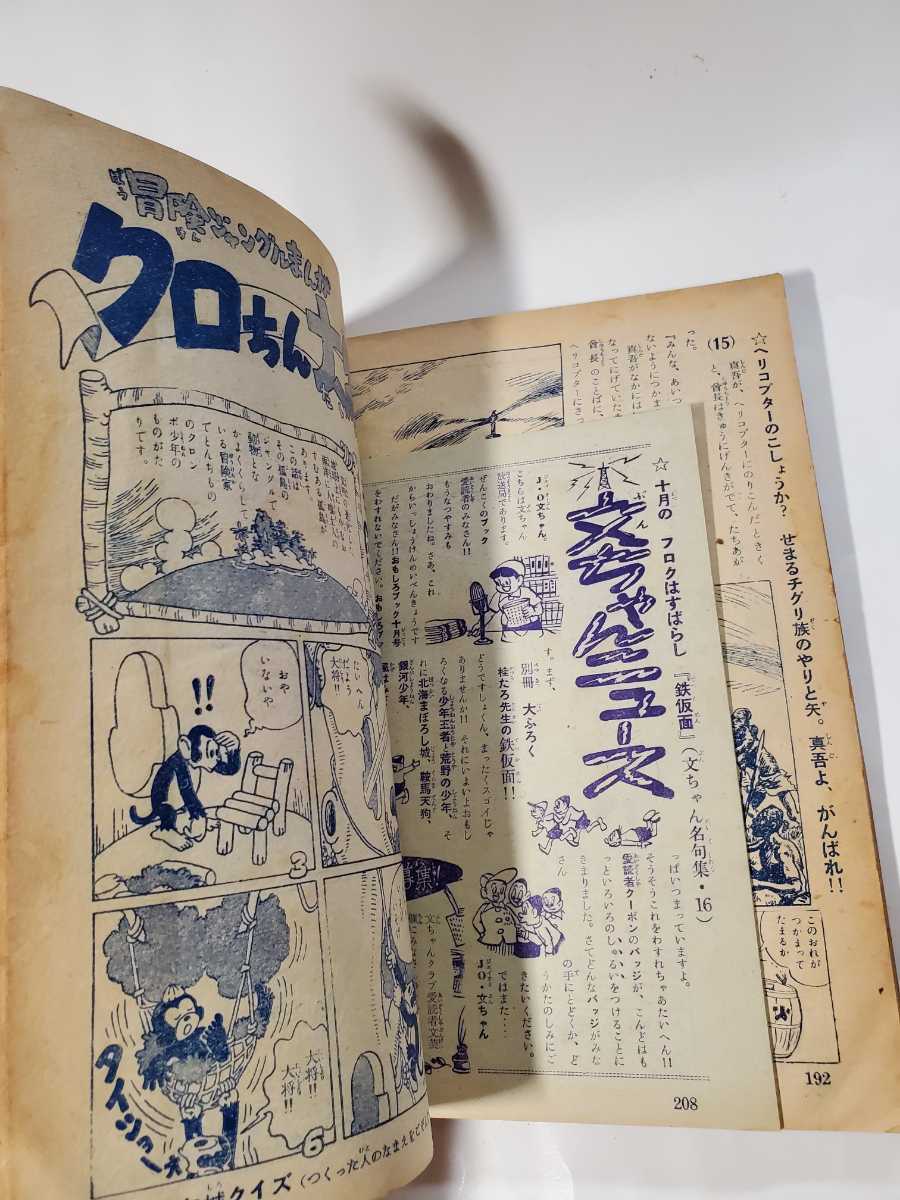 冒険ジャングルまんが
クロちん
ジャングルで
動物とな
かよくくらして
いる冒険家
でとんちもの
のクロン
ボ少年の
ものがた
りです。
おや
いないや
!!
たいへん
だよう
大将!!
3
大将!!
大将!!
タイショー
6
クイズ(つくった人のなまえを
(15)
☆ヘリコプターのこしょうか? せまるチグリ族のやりと矢。真吾よ、がんばれ!!
真吾が、ヘリコプターにのりこんだときく
と、會長はきゅうにげんきがでて、たちあが
った。
『みんな、あいつ
ないようにつかま
真吾がなかには
なってにげていた
會長のことばに、
ヘリコプターにさっ
このおれが
つかまって
たまるか
192
☆十月の フロクはすばらし 『鉄仮面』(文ちゃん名句集・16)
文ちゃんニュース
J・O文ちゃん。
こちらは文ちゃん
放送局であります。
ぜんこくのブック
愛読者のみなさん!!
もうなつやすみも
おわりましたね。さあ、これ
からいっしょうけんのいべんきょうです
だがみなさん!!おもしろブック十月号
をわすれないでください。おもしろブッ
す。まず、
別冊 大ふろく
桂たろ先生の鉄仮面!!
どうですしょくん、まったくスゴイじゃ
ありませんか!! それにいよいよおもし
ろくなる少年王者と荒野の少年、そ
れに北海まぼろし城、鞍馬天狗、
銀河少年、
っぱいつまっていますよ。
そうそうこれをわすれちゃあたいへん!!
愛読者クーポンのバッジが、こんどはも
っといろいろのしゅるいをつけることに
きまりました。さてどんなバッジがみな
さん
の手にとどくか、ど
うかたのしみにご
きたいください。
ではまた‥‥
JO・文ちゃん
文ちゃんクラブ愛読者文芸
208